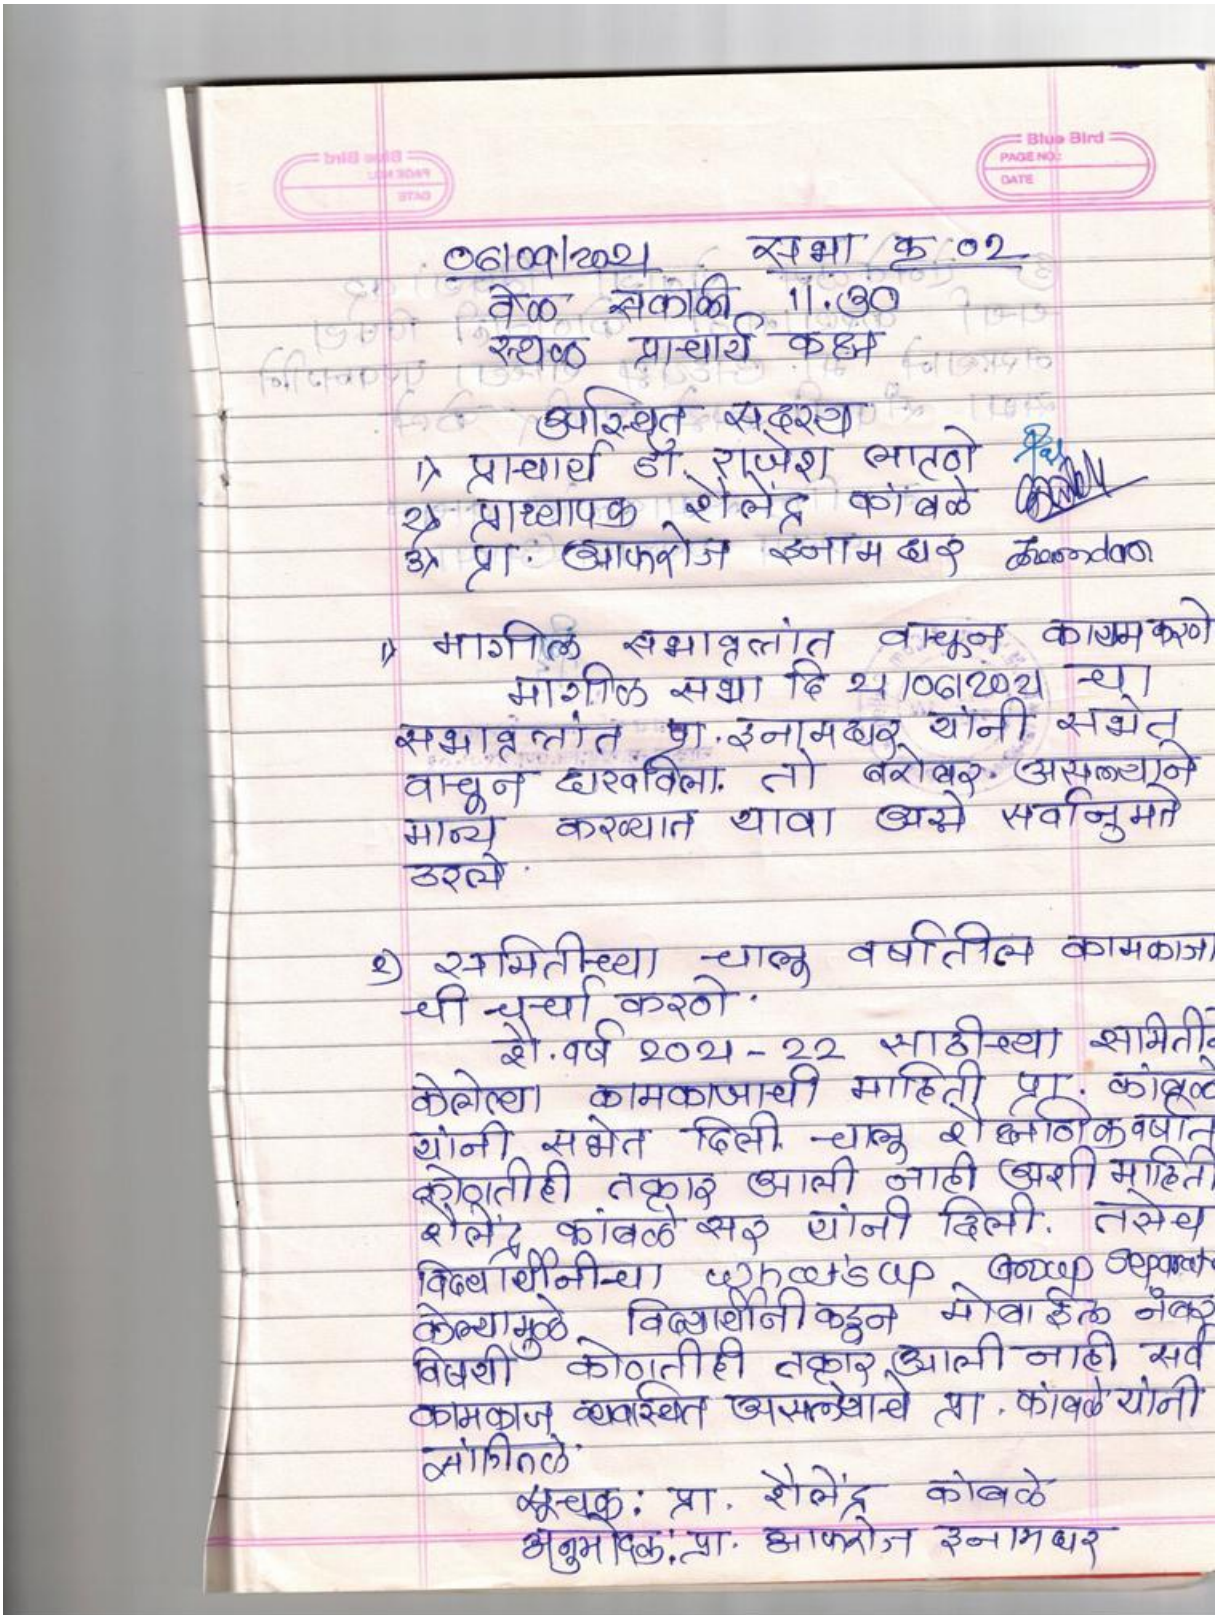 Blue Bird
PAGE NO.:
DATE
06/09/2021 सभा क्र 02
वेळ सकाळी 11.30
स्थळ प्राचार्य कक्ष
उपस्थित सदस्य
1) प्राचार्य डॉ. राजेश
2) प्राध्यापक शैलेंद्र कांबळे
3) प्रा. आफरोज इनामदार
1) मागील सभावृत्तांत वाचून कायम करणे
मागील सभा दि 21/06/2021 चा
सभावृत्तांत प्रा. इनामदार यांनी सभेत
वाचून दाखविला. तो बरोबर असल्याने
मान्य करण्यात यावा असे सर्वानुमते
ठरले.
2) समितीच्या चालू वर्षातील कामकाजा
ची चर्चा करणे.
शै. वर्ष 2021-22 साठीच्या समितीने
केलेल्या कामकाजाची माहिती प्रा. कांबळे
यांनी सभेत दिली. चालू शैक्षणिक वर्षात
कोणतीही तक्रार आली नाही अशी माहिती
शैलेंद्र कांबळे सर यांनी दिली. तसेच
विद्यार्थीनीचा whats up Group Separate
केल्यामुळे विद्यार्थीनीकडून मोबाईल नंबर
विषयी कोणतीही तक्रार आली नाही सर्व
कामकाज व्यवस्थित असलेयाचे प्रा. कांबळे यांनी
सांगितले.
सूचक: प्रा. शैलेंद्र कांबळे
अनुमोदक: प्रा. आफरोज इनामदार